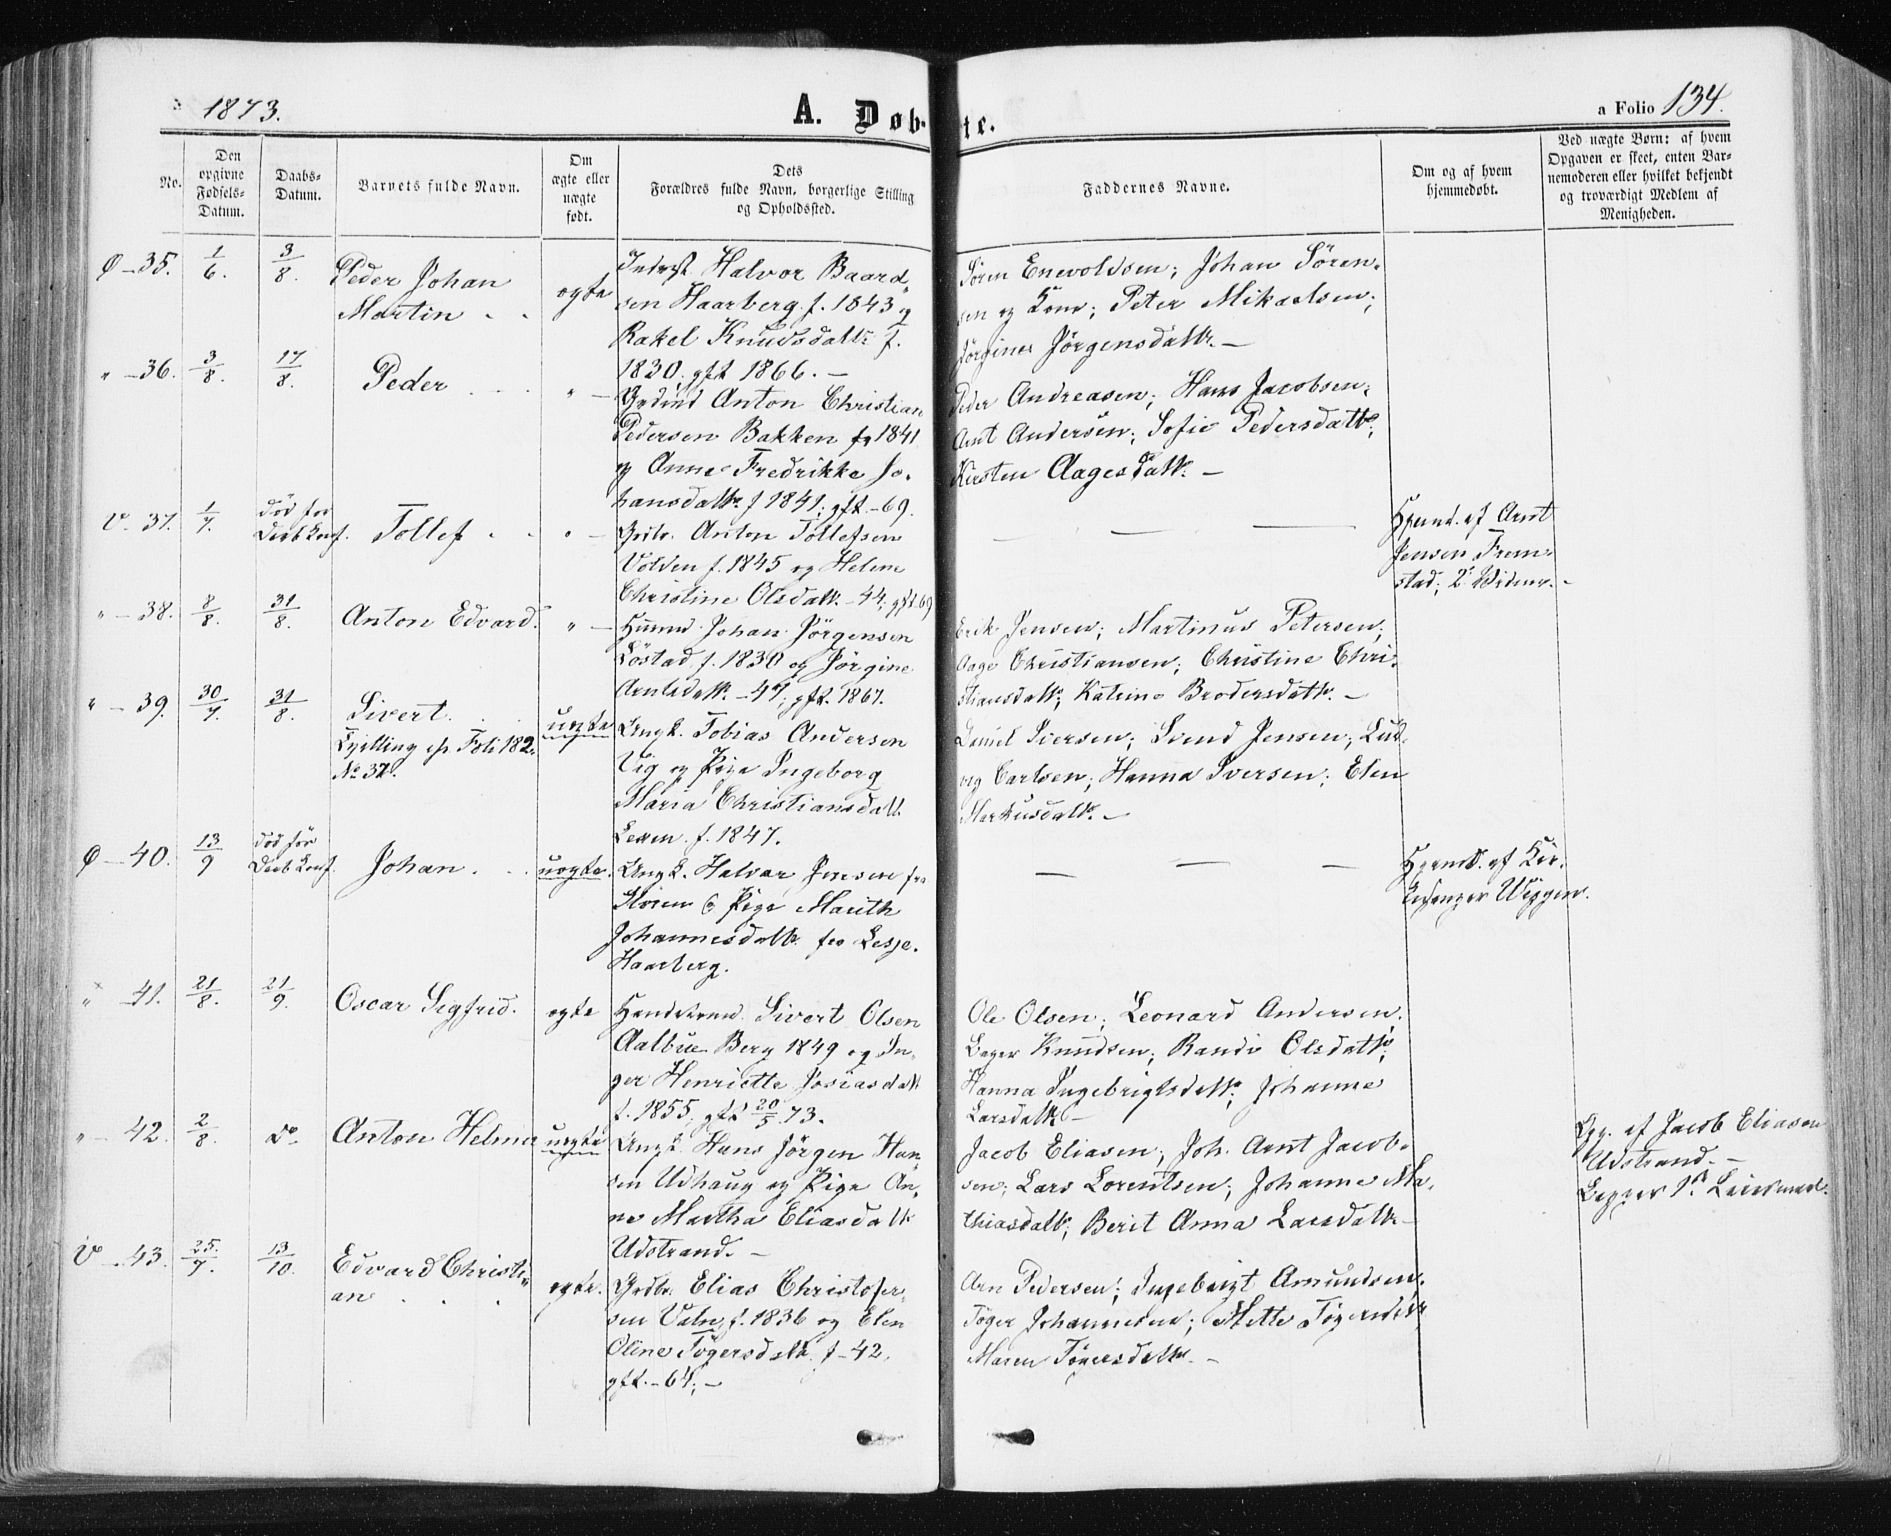 1873.
A. Døb-
te.
a Folio 134.
No.
Den
opgivne
Fødsels-
Datum.
Daabs-
Datum.
Barnets fulde Navn.
Om
ægte eller
uægte
født.
Dets
Forældres fulde Navn, borgerlige Stilling
og Opholdssted.
Faddernes Navne.
Om og af hvem
hjemmedøbt.
Ved uægte Børn: af hvem
Opgaven er skeet, enten Bar-
nemoderen eller hvilket bekjendt
og troværdigt Medlem af
Menigheden.
Ø - 35. 1/6. 3/8. Peder Johan
Martin
ægte
Inderst Halvor Baard-
sen Haarberg f. 1843 og
Rakel Knudsdatr f.
1830, gft 1866. -
Sören Enevoldsen; Johan Sören-
sen og Kone; Peter Mikaelsen;
Jörgine Jörgensdatr. -
" - 36. 3/8. 17/8. Peder " -
Anton Christian
Pedersen Bakken fø 1841
og Anne Fredrikke Jo-
hansdatr f 1841; gft. -69.
Peder Andreasen; Hans Jacobsen;
Arnt Andersen; Sofie Pedersdatr;
Kirsten Aagesdatr. -
V. 37. 1/7. død før
Daab Conf. Tollef " -
Grdbr. Anton Tollefsen
Volden f. 1845 og Helene
Christine Olsdatr. -44; gft. 69
Hjemd. af Arnt
Jensen Frem-
stad; 2 Vidner. -
" - 38. 8/8. 31/8. Anton Edvard. " -
Huusmd Johan Jörgensen
Löstad f. 1830 og Jörgine
Arntsdatr. -47; gft. 1867.
Erik Jensen; Martinus Petersen;
Aage Christiansen; Christine Chri-
stiansdatr; Katrine Brodersdatr. -
" - 39. 30/7. 31/8. Sivert.
Tvilling cfr. Foli 182.
No 37.
uægte
Ungk. Tobias Andersen
Vig og Pige Ingeborg
Maria Christiansdatr
f. 1847.
Daniel Iversen; Svend Jensen; Lud-
vig Carlsen; Hanna Iversen; Elen
Markusdatr. -
Ø - 40. 13/9 død før
Daab Conf. Johan uægte.
Ungk. Halvor Jensen fra
Horen & Pige Marith
Johannesdatr fra Lesje.
Haarberg.
Hjemd. af Kir-
kesanger Wiggen.
" 41. 21/8. 21/9. Oscar Sigfrid. ægte
Handelsmd Sivert Olsen
Aalbue Berg 1849 og In-
ger Henriette Josiasdatr
f. 1855, gft 20/5 73.
Ole Olsen; Leonard Andersen;
Knudsen; Randi Olsdatr;
Hanna Ingebrigtsdatr; Johanne
Larsdatr -
" - 42. 2/8. do. Anton Helmer uægte
Ungk. Hans Jörgen Han-
sen Udhaug og Pige An-
ne Martha Eliasdatr
Udstrand. -
Jacob Eliasen; Joh. Arnt Jacob-
sen; Lars Lorentsen; Johanne Ma-
thiasdatr; Berit Anna Larsdatr -
Opg. af Jacob Eliasen
Udstrand. -
Begges 1ste Leiermaal.
V - 43. 25/7. 13/10. Edvard Christi-
an
ægte.
Grdbr. Elias Christofer-
sen Valn f. 1836 og Elen
Oline Tögersdatr. f -42,
gft. -64; -
Arn Pedersen; Ingebrigt Amundsen;
Töger Johannesen; Mette Tögersdatr
Maren Tögersdatr. -